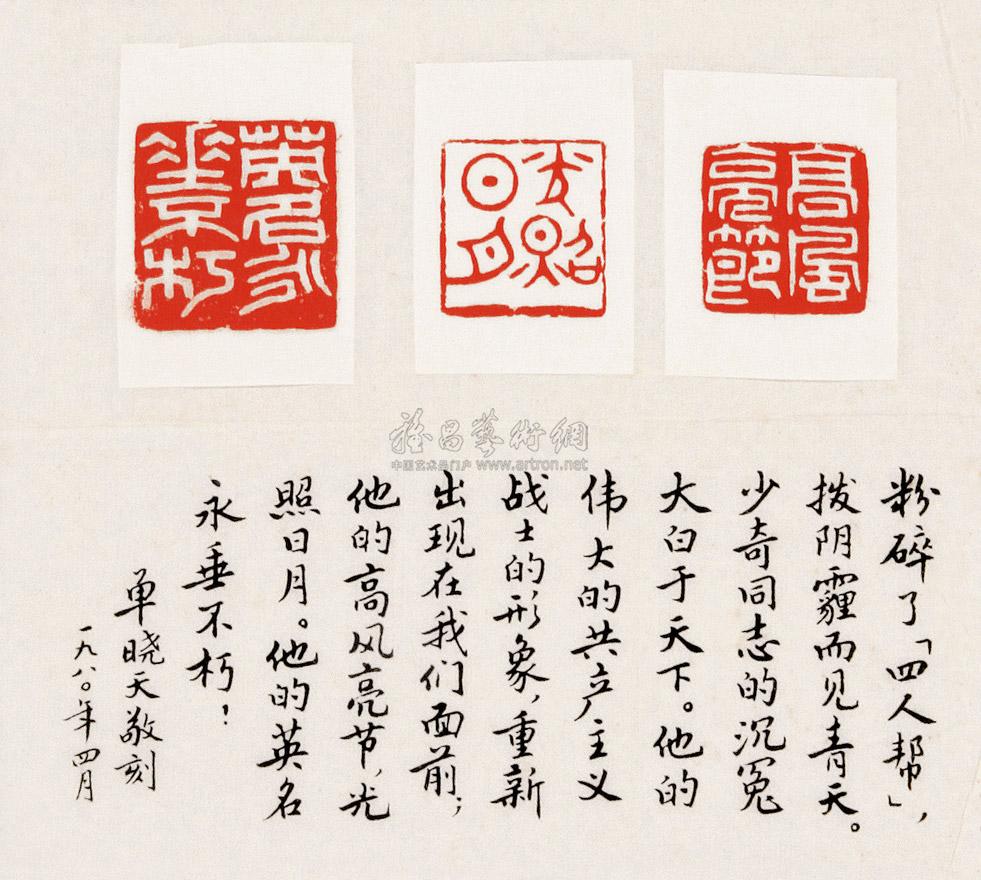 高風
亮節
光照
日月
英名永
垂不朽
雅昌藝術網
中国艺术品门户 www.artron.net
粉碎了「四人帮」，
拨阴霾而见青天。
少奇同志的沉冤
大白于天下。他的
伟大的共产主义
战士的形象，重新
出现在我们面前；
他的高风亮节，光
照日月。他的英名
永垂不朽！
单晓天敬刻
一九八〇年四月